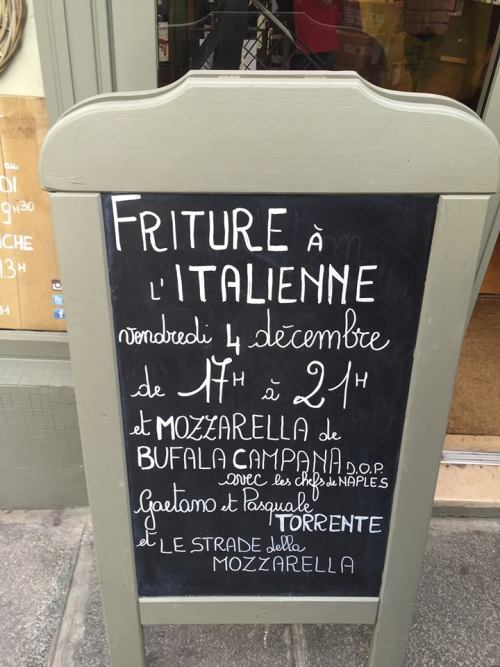 FRITURE À
L'ITALIENNE
vendredi 4 décembre
de 17H à 21H
et MOZZARELLA de
BUFALA CAMPANA D.O.P.
avec les chefs de NAPLES
Gaetano et Pasquale
TORRENTE
et LE STRADE della
MOZZARELLA
au
DI
9H30
CHE
13H